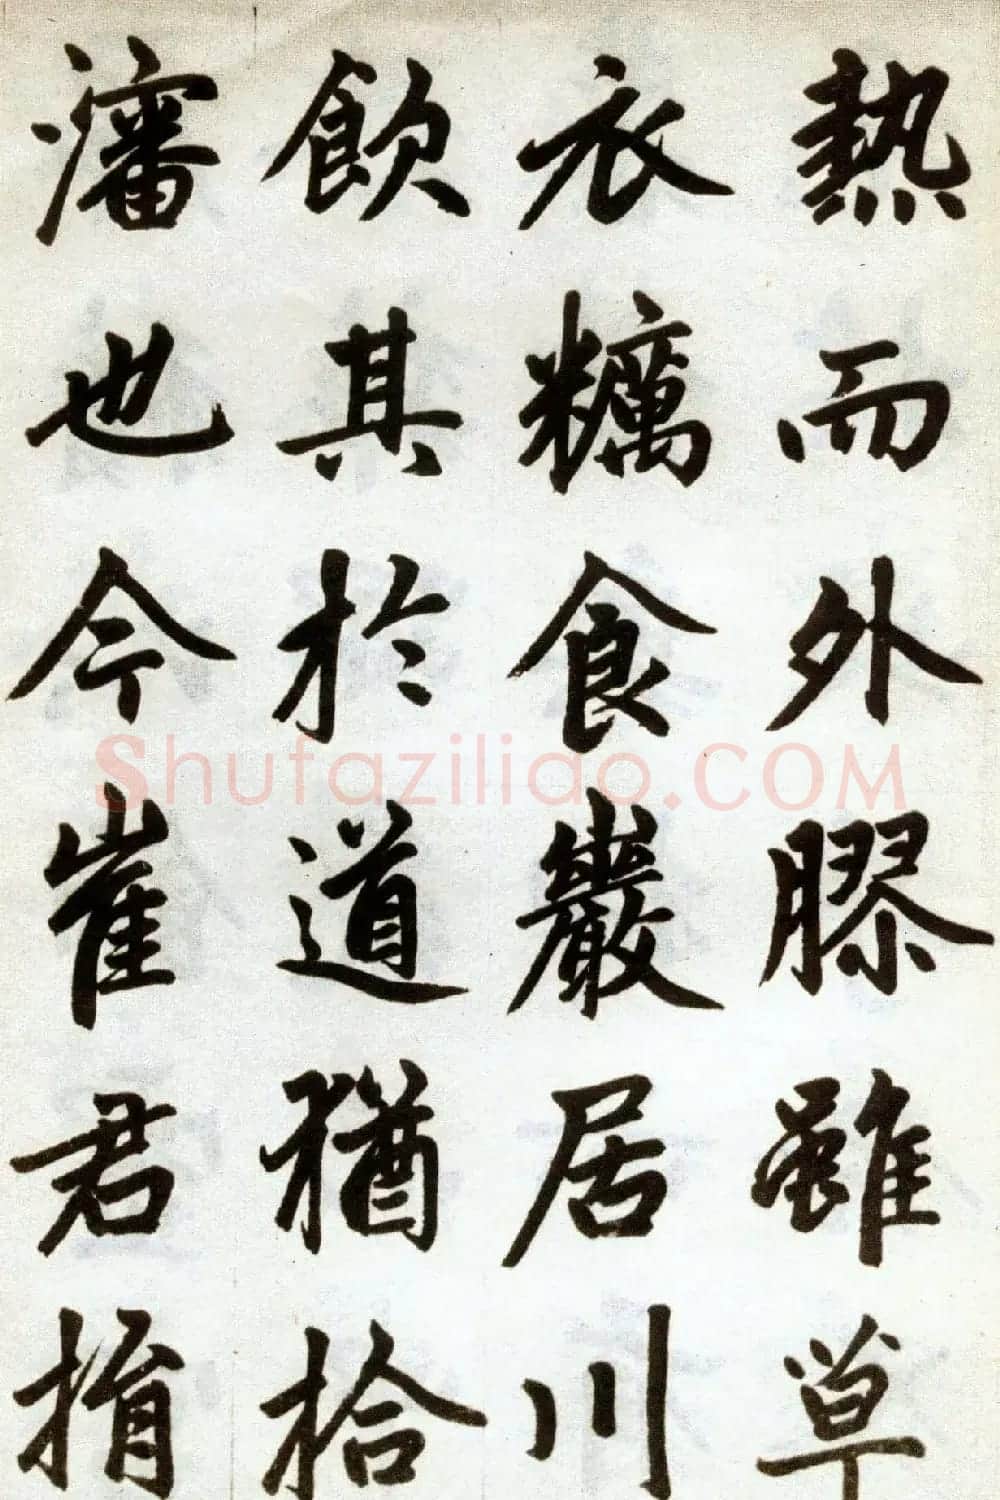 熱而外膠雖草
衣糲食巖居川
飲其於道猶拾
瀋也今崔君捐
Shufaziliao.COM